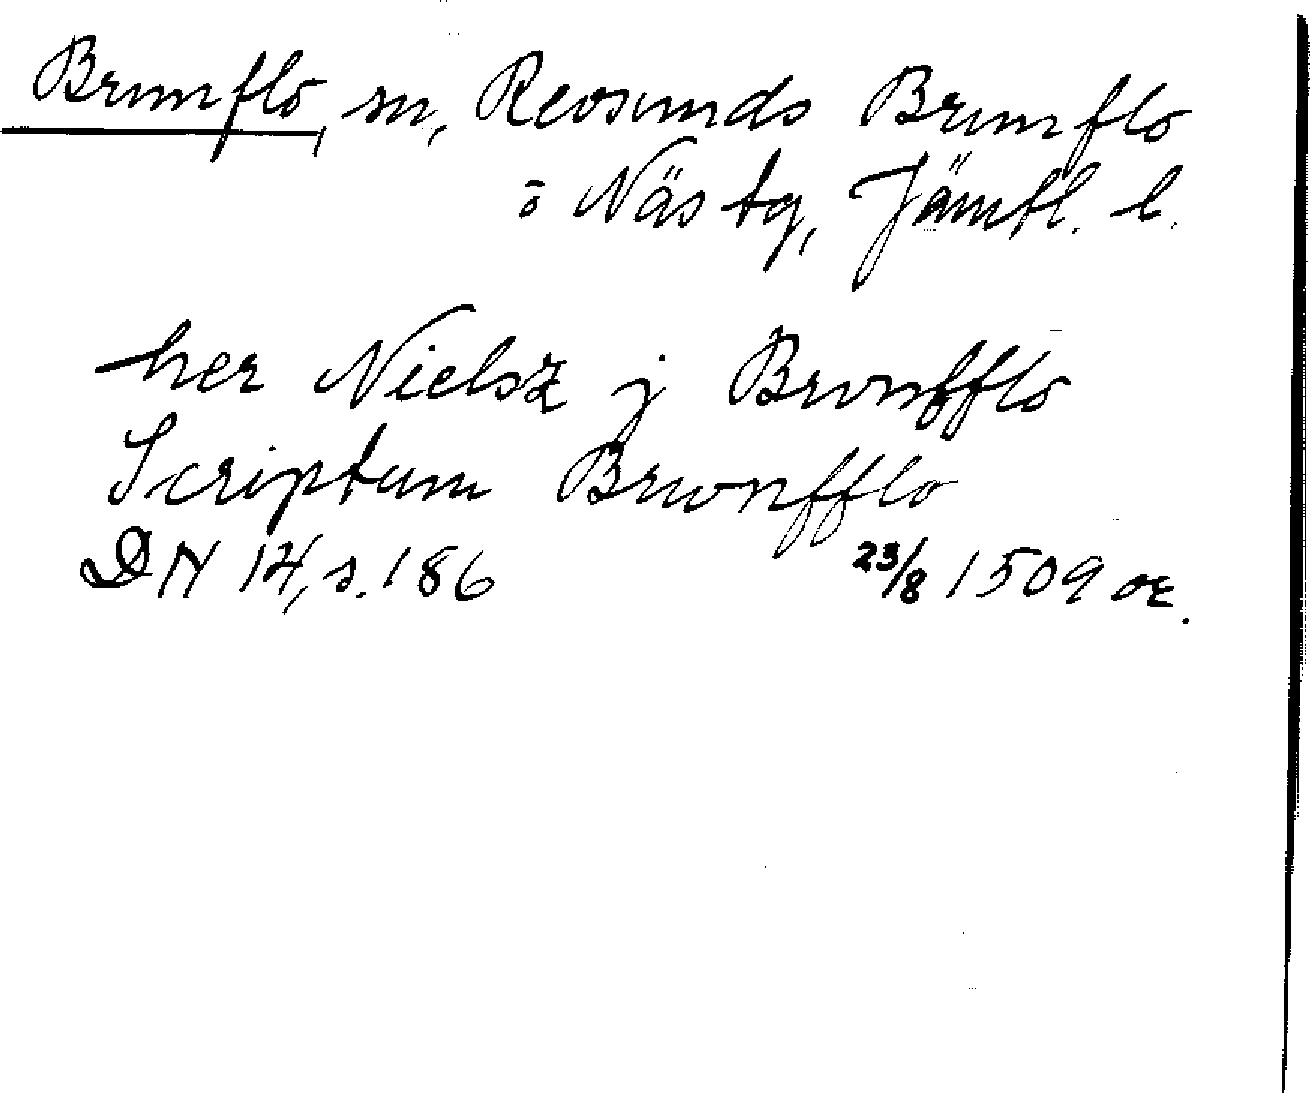 Brunflo, sn, Revsunds Brunflo
o Näs tg, Jämtl. l.
her Nielsz j Brvnfflo
Scriptum Brwnfflo
DN 14, s. 186 23/8 1509 or.